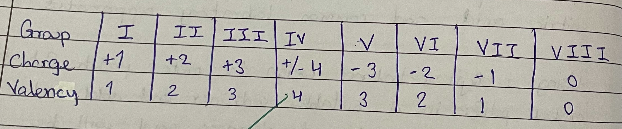 Group I II III IV V VI VII VIII
Charge +1 +2 +3 +/- 4 -3 -2 -1 0
Valency 1 2 3 4 3 2 1 0